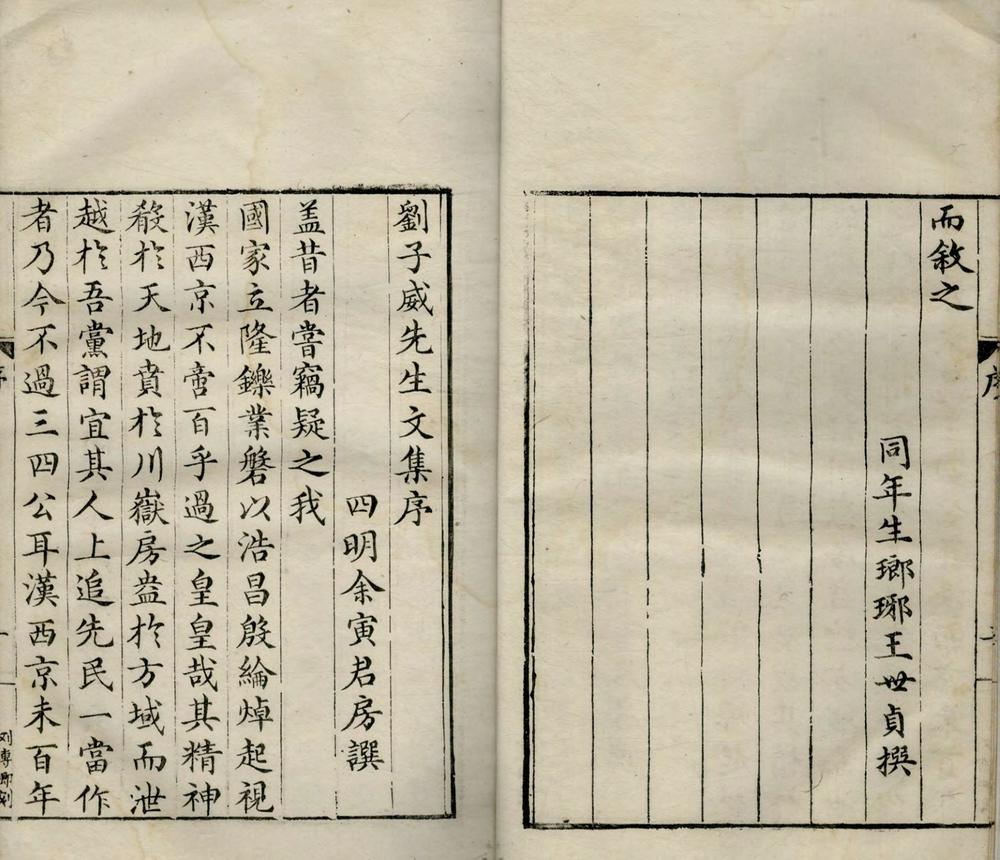 而敘之
同年生瑯琊王世貞撰
序
劉子威先生文集序
四明余寅君房譔
盖昔者嘗竊疑之我
國家立隆鑠業磐以浩昌殷綸焯起視
漢西京不啻百乎過之皇皇哉其精神
殽於天地賁於川嶽房盎於方域而泄
越於吾黨謂宜其人上追先民一當作
者乃今不過三四公耳漢西京未百年
序